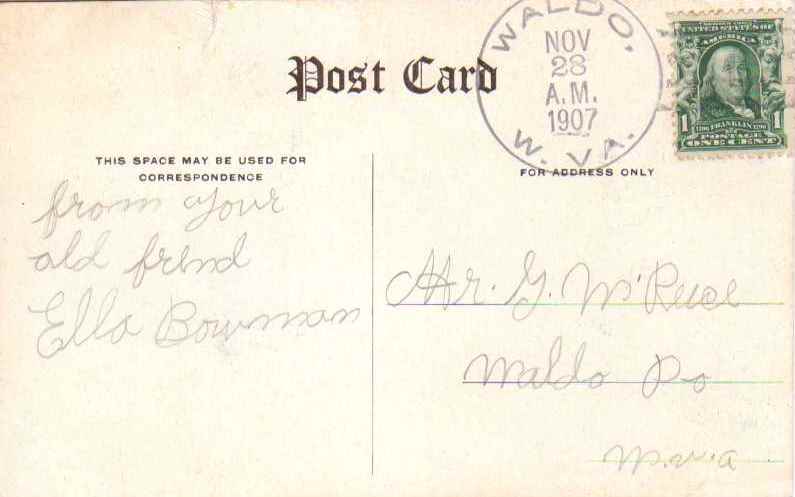 Post Card
WALDO,
NOV
28
A.M.
1907
W. VA.
UNITED STATES OF
AMERICA
1706 FRANKLIN 1790
1 1
POSTAGE
ONE CENT
THIS SPACE MAY BE USED FOR
CORRESPONDENCE
from your
old frend
Ella Bowman
FOR ADDRESS ONLY
Mr. G. W.
Waldo Po
W.V.a